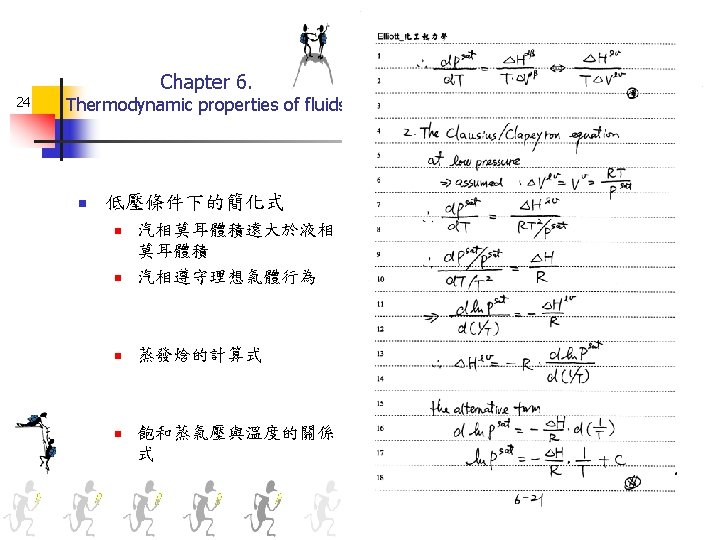 24
Chapter 6.
Thermodynamic properties of fluids
低壓條件下的簡化式
汽相莫耳體積遠大於液相
莫耳體積
汽相遵守理想氣體行為
蒸發焓的計算式
飽和蒸氣壓與溫度的關係
式
Elliott_化工熱力學
1 ∴ dP^sat/dT = ΔH^αβ/(T·ΔV^αβ) ⇔ ΔH^lv/(TΔV^lv)
2
3
4 2. The Clausius/Clapeyron equation
5 at low pressure
6 ⇒ assumed ΔV^lv = V^v = RT/P^sat
7
8 ∴ dP^sat/dT = ΔH^lv/(RT²/P^sat)
9
10 ∴ (dP^sat/P^sat)/(dT/T²) = ΔH/R
11 ⇒ dlnP^sat/d(1/T) = -ΔH^lv/R
12
13 ∴ ΔH^lv = -R · dlnP^sat/d(1/T)
14
15 the alternative form
16 dlnP^sat = -ΔH/R · d(1/T)
17 lnP^sat = -ΔH/R · 1/T + C
18
6-21